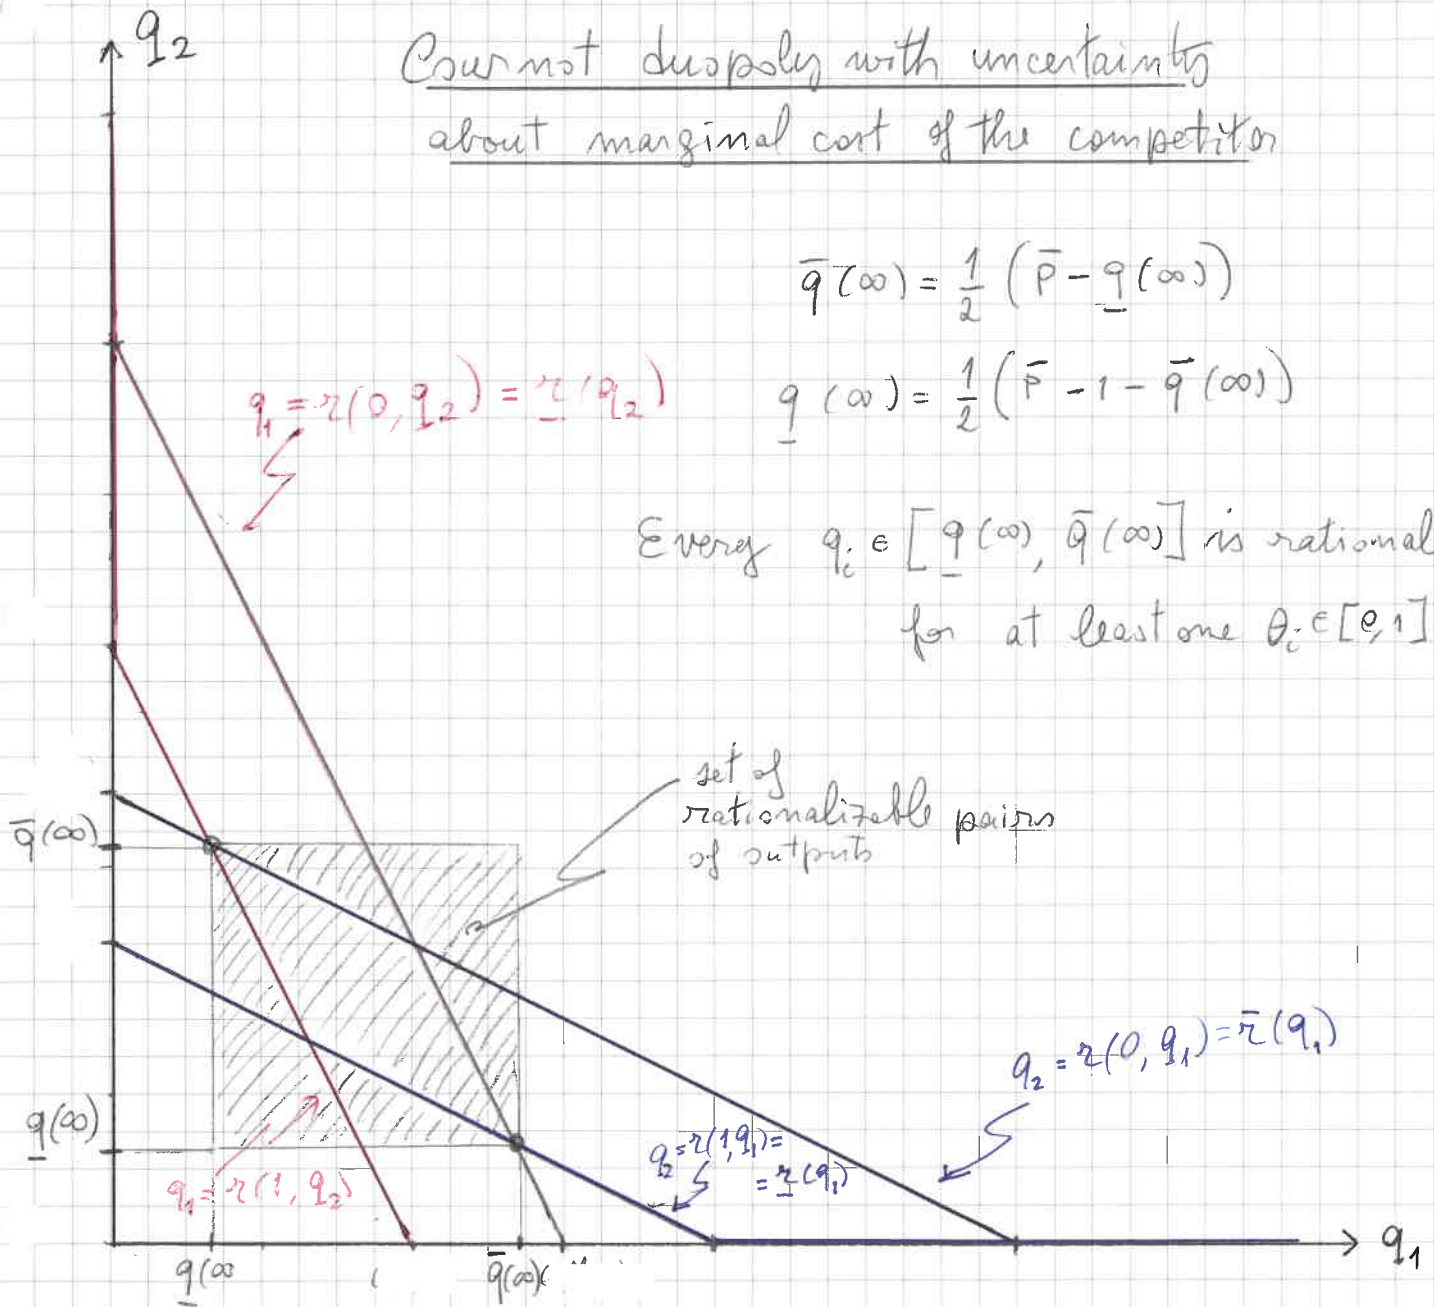 q₂
Cournot duopoly with uncertainty
about marginal cost of the competitor
q̄(∞) = 1/2 (p̄ − q̲(∞))
q₁ = r(0, q₂) = r̲(q₂)
q̲(∞) = 1/2 (p̄ − 1 − q̄(∞))
Every qᵢ ∈ [q̲(∞), q̄(∞)] is rational
for at least one θᵢ ∈ [0,1]
set of
rationalizable pairs
of outputs
q̄(∞)
q₂ = r(0, q₁) = r̄(q₁)
q̲(∞)
q₂ = r(1, q₁) =
= r̲(q₁)
q₁ = r(1, q₂)
q₁
q̲(∞
q̄(∞)